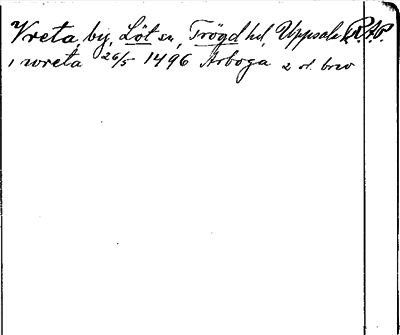 Vreta, by, Löt sn, Trögd hd, Uppsala l. R.A.P.
i wreta 26/5 1496 Arboga 2 st. brev